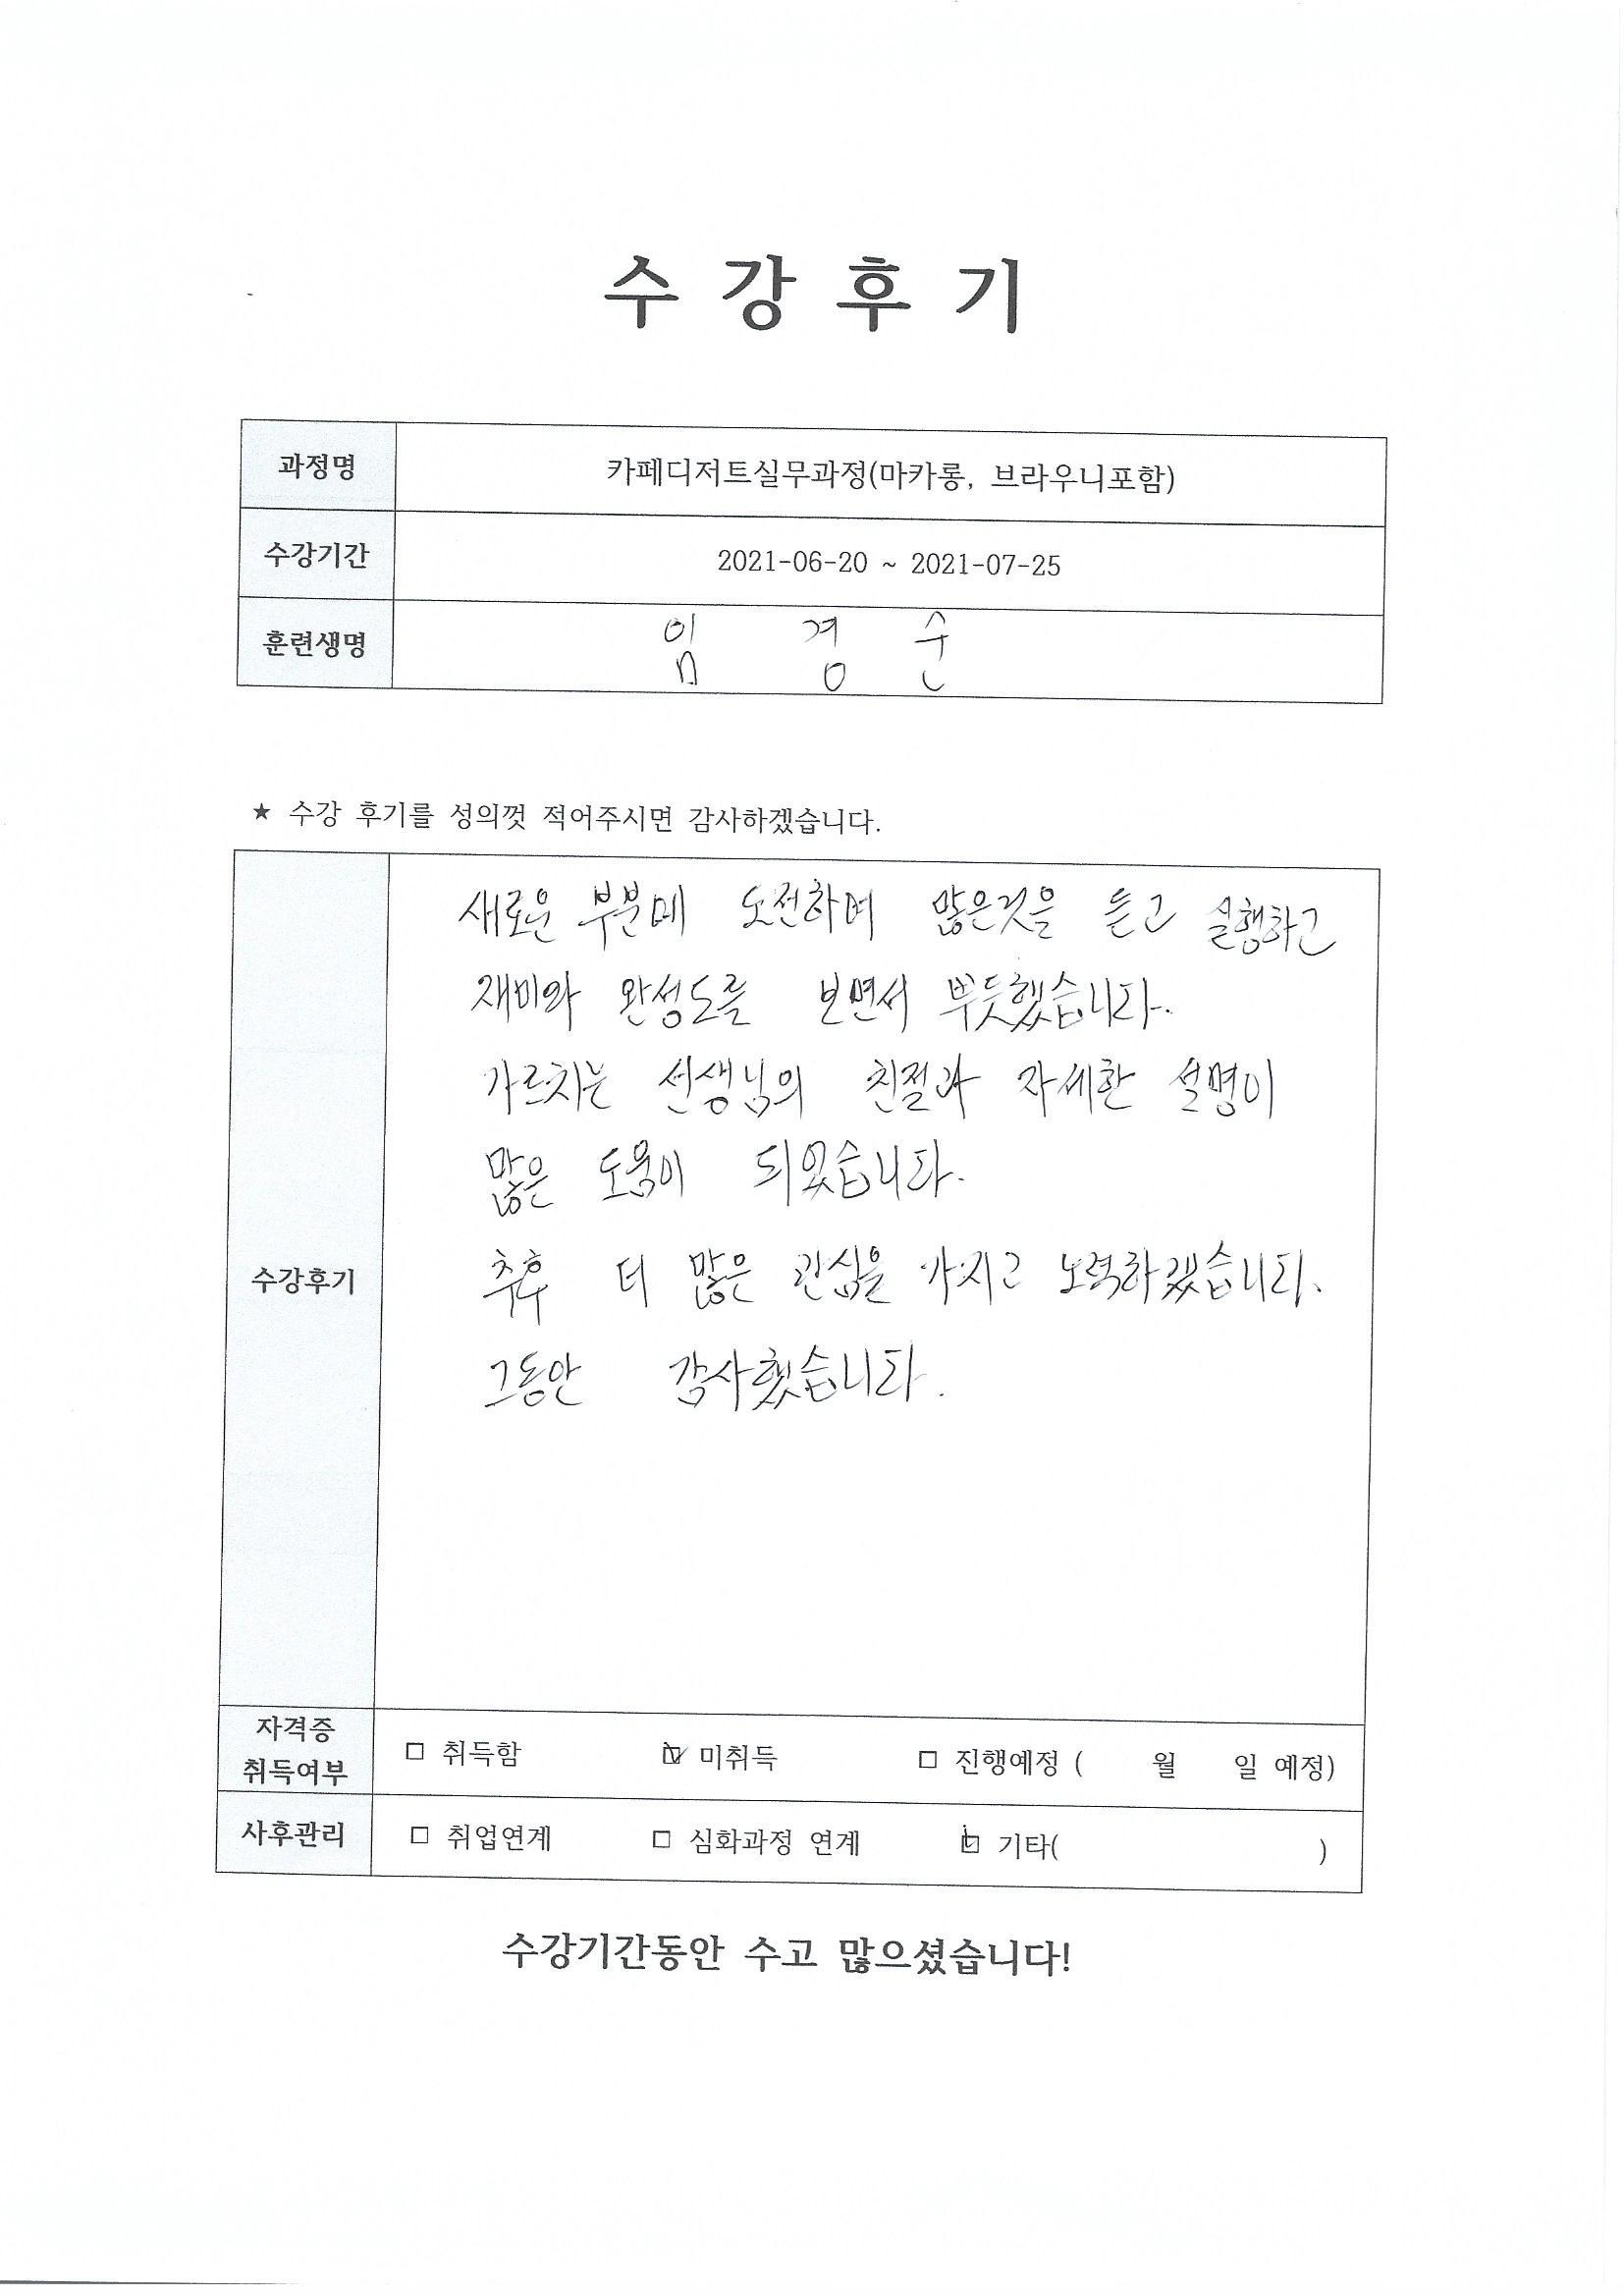 수 강 후 기
과정명 카페디저트실무과정(마카롱, 브라우니포함)
수강기간 2021-06-20 ~ 2021-07-25
훈련생명 임 경 순
★ 수강 후기를 성의껏 적어주시면 감사하겠습니다.
수강후기
새로운 부분에 도전하며 많은것을 듣고 실행하고
재미와 완성도를 보면서 뿌듯했습니다.
가르치는 선생님의 친절과 자세한 설명이
많은 도움이 되었습니다.
추후 더 많은 관심을 가지고 노력하겠습니다.
그동안 감사했습니다.
자격증 취득여부 □ 취득함 ☑ 미취득 □ 진행예정 ( 월 일 예정)
사후관리 □ 취업연계 □ 심화과정 연계 ☑ 기타( )
수강기간동안 수고 많으셨습니다!